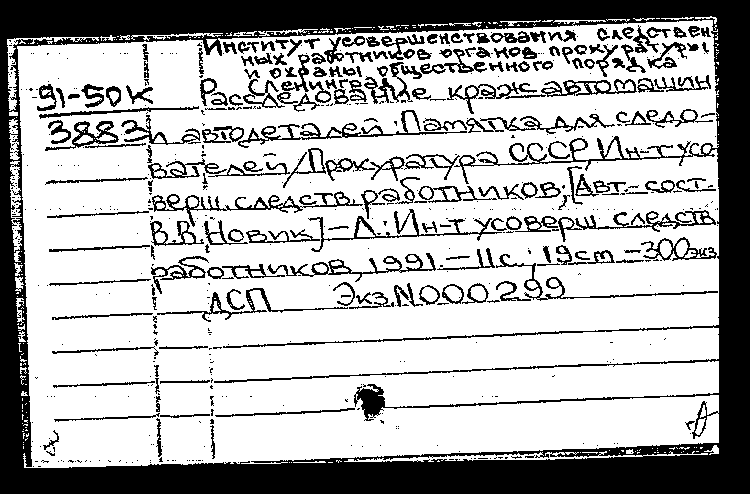 Институт усовершенствования следствен
ных работников органов прокуратуры
и охраны общественного порядка
(Ленинград)
91-50к
3883
Расследование краж автомашин
и автодеталей: Памятка для следо-
вателей/Прокуратура СССР, Ин-т усо
верш. следств. работников; [Авт.-сост.
В.В.Новик] – Л.: Ин-т усоверш. следств.
работников, 1991. – 11с.; 19см. – 300экз
ДСП Экз.N000299